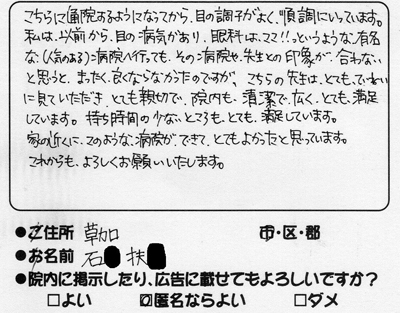 こちらに通院するようになってから、目の調子がよく、順調にいっています。
私は、以前から、目の病気があり、眼科は、ココ!!っというような、有名
な、(人気のある)病院へ行っても、その病院や、先生との印象が、合わない
と思うと、まったく、良くならなかったのですが、こちらの先生は、とても、ていねい
に見ていただき、とても親切で、院内も、清潔で、広く、とても、満足
しています。待ち時間の少ないところも、とても、満足しています。
家の近くに、このような、病院が、できて、とてもよかったと思っています。
これからも、よろしくお願いいたします。
●ご住所 草加 市・区・郡
●お名前 石 扶
●院内に掲示したり、広告に載せてもよろしいですか?
□よい ☑匿名ならよい □ダメ